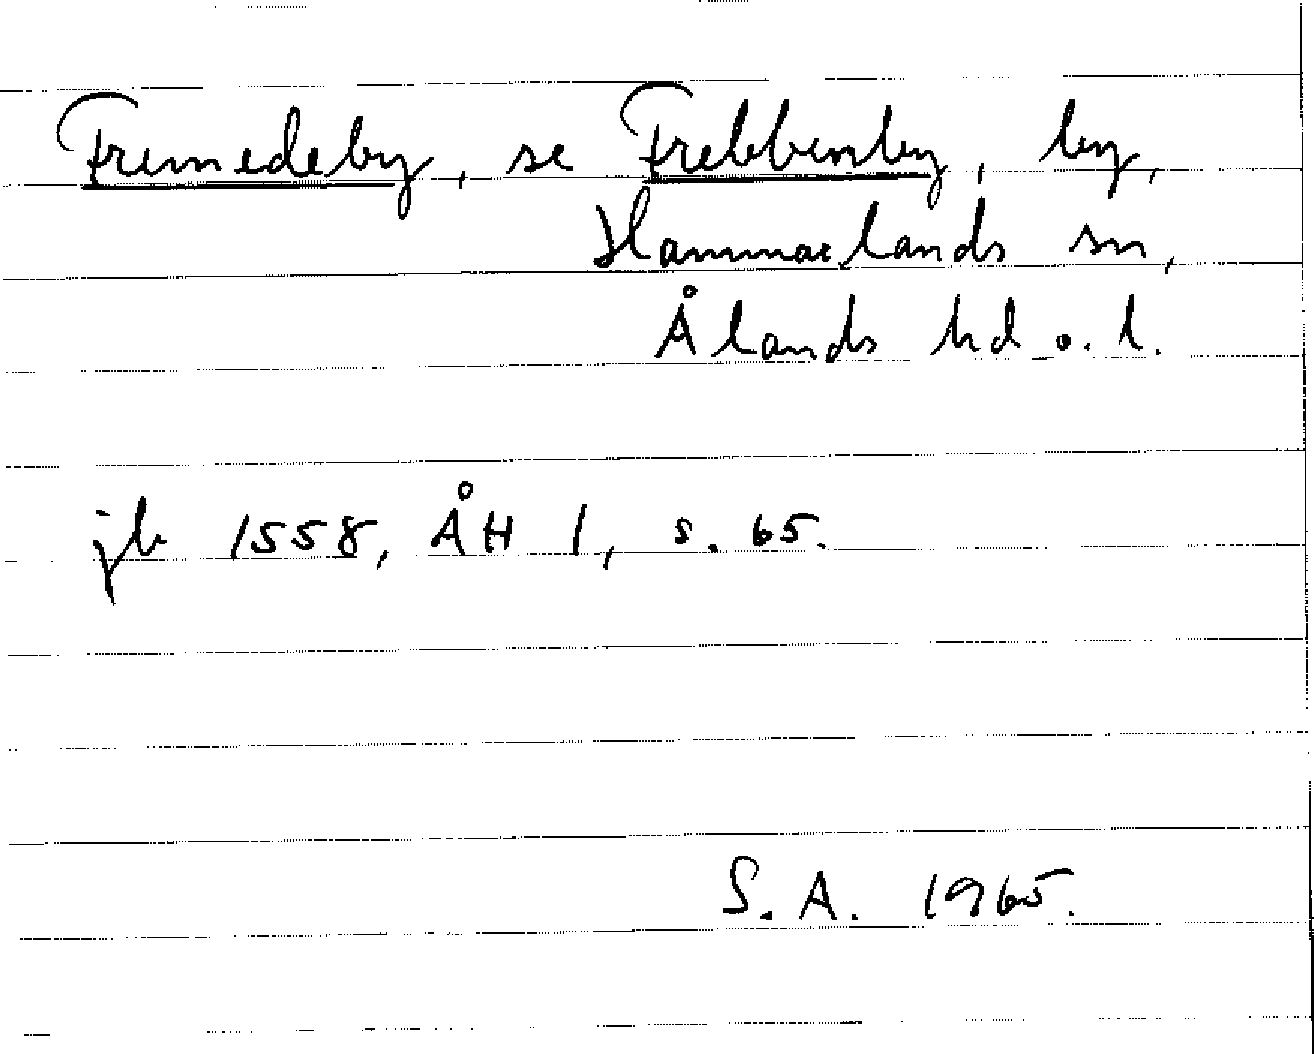 Fremedeby, se Frebbenby, by,
Hammarlands sn,
Ålands hd o. l.
jb 1558, ÅH 1, s. 65.
S.A. 1965.